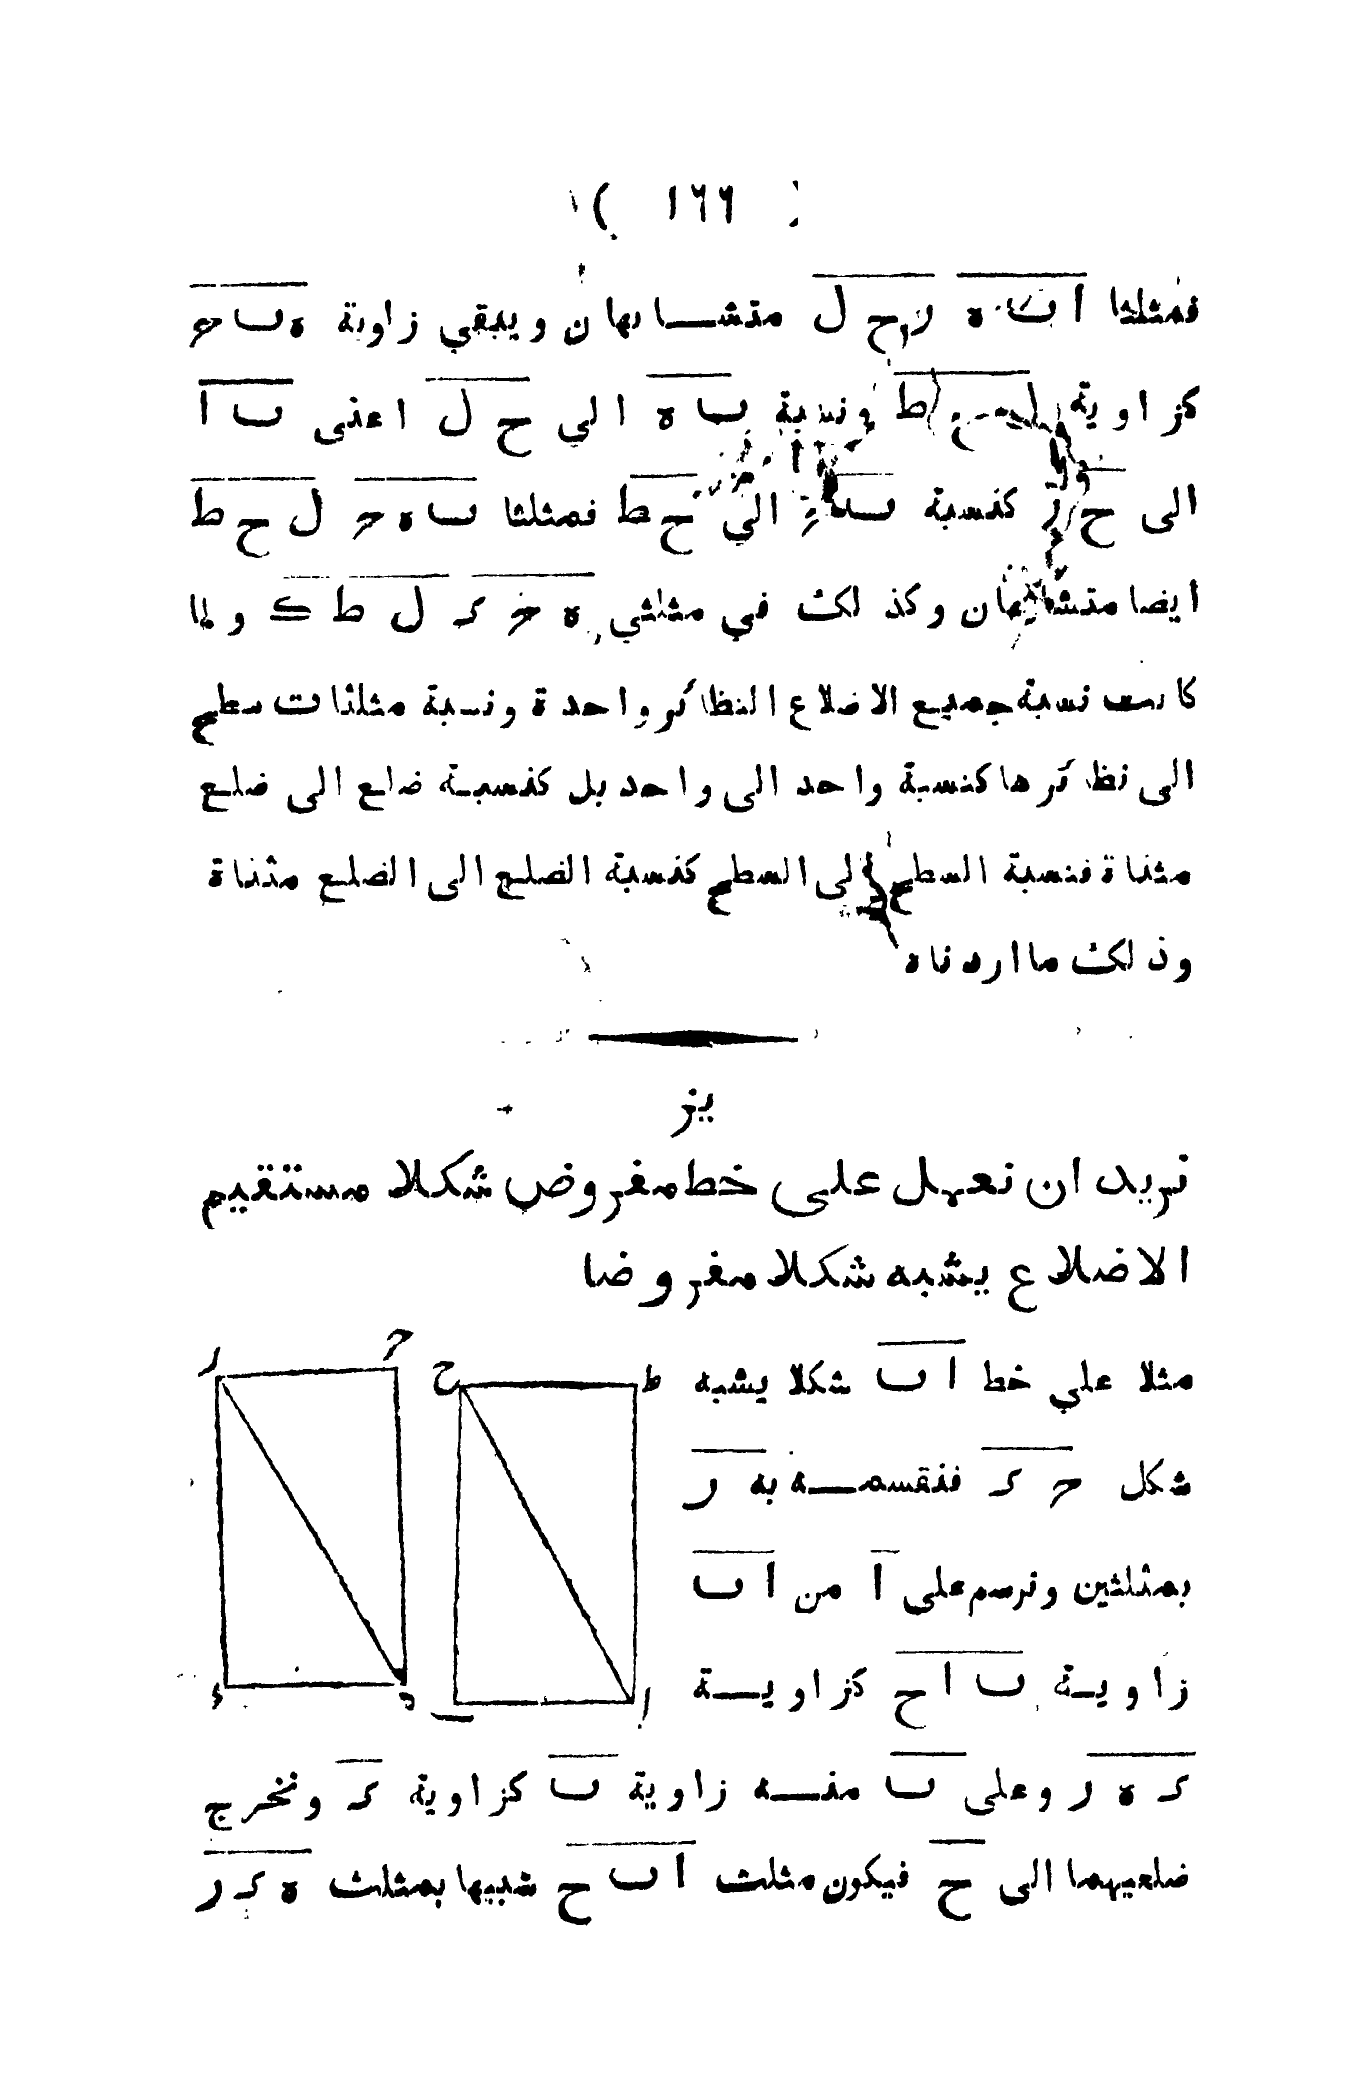 ( ١٦٦ )
فمثلثا ا ب ه ز ح ل متشابهان ويبقي زاوية ه ب ح
كزاوية ل ح ط ونسبة ب ه الي ح ل اعنى ب ا
الى ح ز كنسبة ب ح الي ح ط فمثلثا ب ه ح ل ح ط
ايضا متشابهان وكذلك في مثلثي ه ح د ل ط ك ولما
كانت نسبة جميع الاضلاع النظائر واحدة ونسبة مثلثات سطح
الى نظائرها كنسبة واحد الى واحد بل كنسبة ضلع الى ضلع
مثناة فنسبة السطح الى السطح كنسبة الضلع الى الضلع مثناة
وذلك ما اردناه
يز
نريد ان نعمل على خط مفروض شكلا مستقيم
الاضلاع يشبه شكلا مفروضا
مثلا علي خط ا ب شكلا يشبه
شكل ح د فنقسمه به ر
بمثلثين ونرسم على ا من ا ب
زاوية ب ا ح كزاوية
د ه ر وعلى ب منه زاوية ب كزاوية د ونخرج
ضلعيهما الى ح فيكون مثلث ا ب ح شبيها بمثلث ه د ر
ر ح ح ط
د ه ب ا